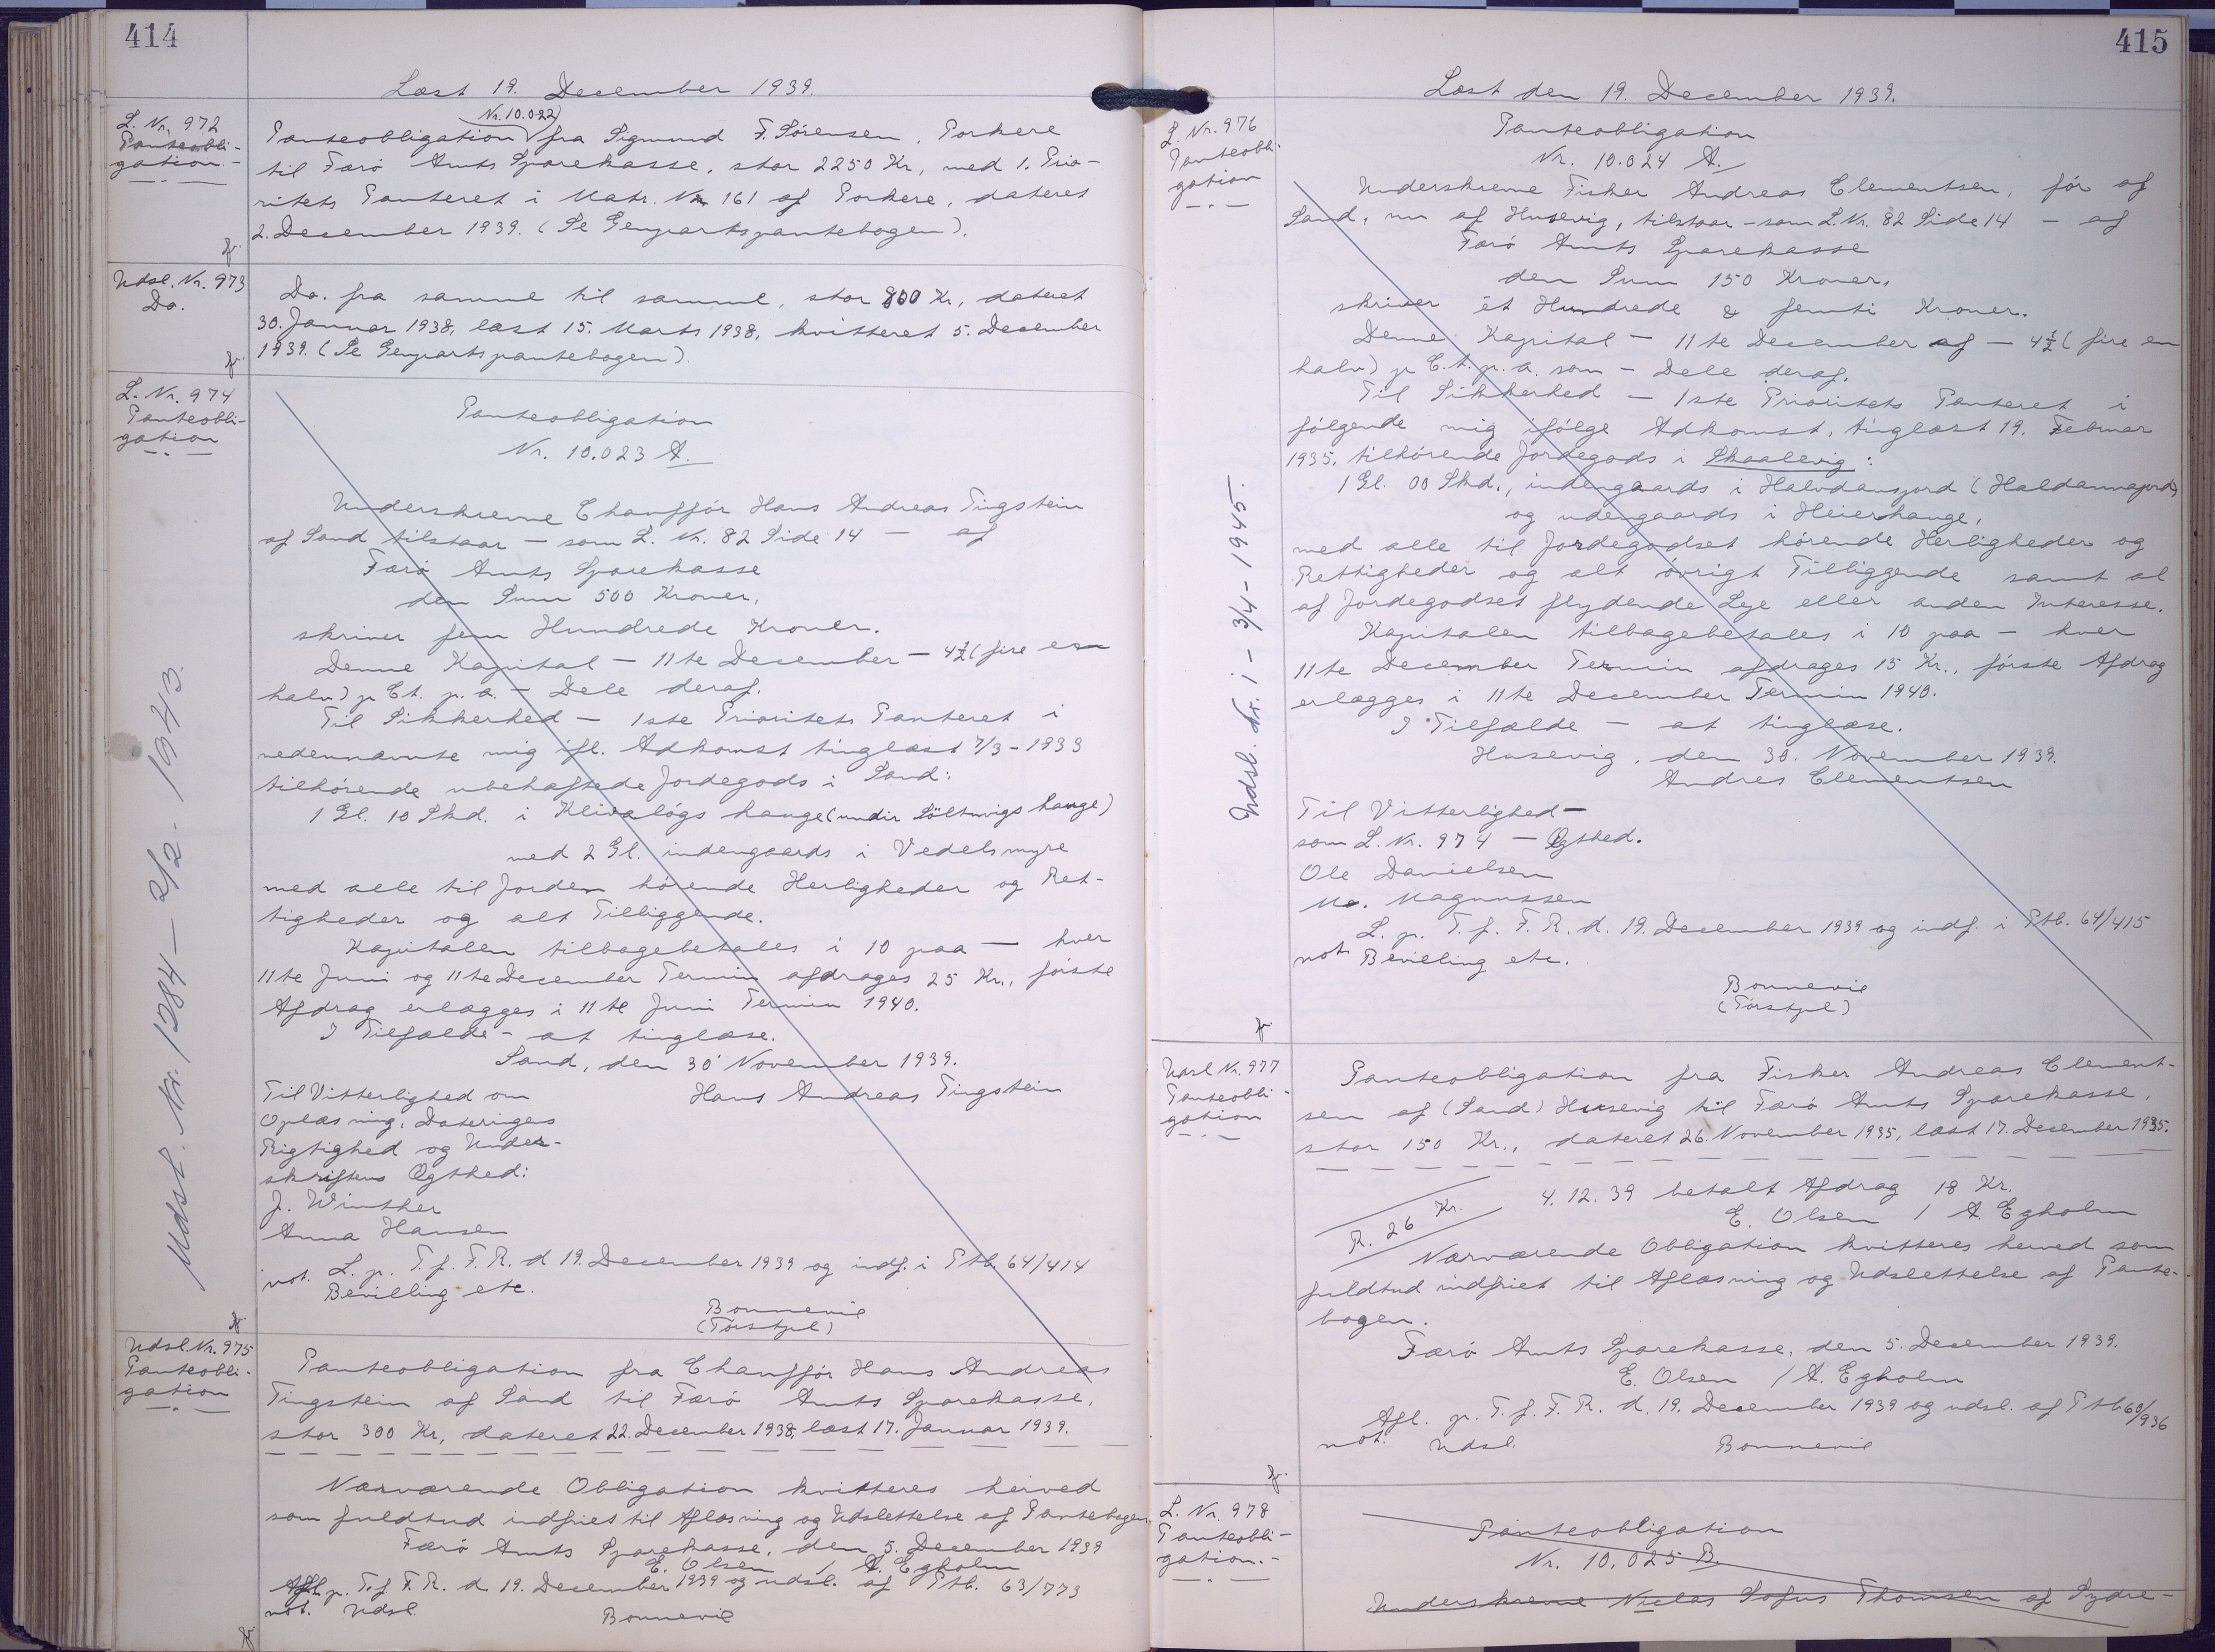 414
Læst 19. December 1939.
L. Nr. 972
Panteobli-
gation.-
Nr. 10.022
Panteobligation fra Sigmund F. Sørensen, Porkere
til Færö Amts Sparekasse, stor 2250 Kr, med 1. Prio-
ritets Panteret i Matr. Nr 161 af Porkere, dateret
2. December 1939. (Se Genpartspantebogen).
Udsl. Nr. 973
Do.
Do. fra samme til samme, stor 800 Kr, dateret
30. Januar 1938, læst 15. Marts 1938, kvitteret 5. December
1939. (Se Genpartspantebogen).
L. Nr. 974
Panteobli-
gation
Panteobligation
Nr. 10.023 A.
Underskrevne Chauffør Hans Andreas Tingstein
af Sand tilstaar - som L. Nr. 82 Side 14 - af
Færö Amts Sparekasse
den Sum 500 Kroner,
skriver fem Hundrede Kroner.
Denne Kapital - 11te December - 4½ (fire en
halv) p Ct. p. a. - Dele deraf.
Til Sikkerhed - 1ste Prioritets Panteret i
nedennævnte mig ifl. Adkomst tinglæst 7/3-1933
tilhörende ubehæftede Jordegods i Sand:
1 Gl. 10 Skd. i Klivalógs hauge (undir Söltuvigs hauge)
med 2 Gl. indengaards i Vedelsmyre
med alle til Jorden hörende Herligheder og Ret-
tigheder og alt Tilliggende.
Kapitalen tilbagebetales i 10 paa - hver
11te Juni og 11te December Termin afdrages 25 Kr., förste
Afdrag erlægges i 11te Juni Termin 1940.
I Tilfælde - at tinglæse.
Sand, den 30' November 1939.
Til Vitterlighed om
Hans Andreas Tingstein
Oplæsning, Dateringens
Rigtighed og Under-
skriftens Ægthed:
J. Winther
Anna Hansen
L. p. T. f. F. R. d 19. December 1939 og indf. i Ptb. 64/414
not. Bevilling etc.
Bonnevie
(Tórstpl)
Udsl. Nr. 1384 - 2/2 - 1943.
Udsl. Nr. 975
Panteobli-
gation
Panteobligation fra Chauffør Hans Andreas
Tingstein af Sand til Færö Amts Sparekasse,
stor 300 Kr, dateret 22. December 1938, læst 17. Januar 1939.
Nærværende Obligation kvitteres herved
som fuldtud indfriet til Aflæsning og Udslettelse af Pantebogen.
Færö Amts Sparekasse, den 5. December 1939
E. Olsen / A. Egholm
Afl. p. T. f. F. R. d 19. December 1939 og udsl. af Ptb. 63/773
not. Udsl.
Bonnevie
415
Læst den 19. December 1939.
L. Nr. 976
Panteobli-
gation
Panteobligation
Nr. 10.024 A.
Underskrevne Fisker Andreas Clementsen, för af
Sand, nu af Husevig, tilstaar - som L. Nr. 82 Side 14 - af
Færö Amts Sparekasse
den Sum 150 Kroner,
skriver ét Hundrede & femti Kroner.
Denne Kapital - 11te December af - 4½ (fire en
halv) p C.t. p. a. som - Dele deraf.
Til Sikkerhed - 1ste Prioritets Panteret i
fölgende mig ifölge Adkomst, tinglæst 19. Februar
1935, tilhörende Jordegods i Skaalevig:
1 Gl. 00 Skd., indengaards i Halvdansjord (Haldannajord)
og udengaards i Heierhauge,
med alle til Jordegodset hörende Herligheder og
Rettigheder og alt övrigt Tilliggende samt al
af Jordegodset flydende Leje eller anden Interesse.
Kapitalen tilbagebetales i 10 paa - hver
11te December Termin afdrages 15 Kr., förste Afdrag
erlægges i 11te December Termin 1940.
I Tilfælde - at tinglæse.
Husevig, den 30. November 1939.
Andres Clementsen
Til Vitterlighed -
som L. Nr. 974 - Ægthed.
Ole Danielsen
Ma. Magnussen
L. p. T. f. F. R. d. 19. December 1939 og indf. i Ptb. 64/415
not Bevilling etc.
Bonnevie
(Tórstpl)
Udsl. Nr. i - 3/4 - 1945.
Udsl Nr. 977
Panteobli-
gation
Panteobligation fra Fisker Andreas Clement-
sen af (Sand) Husevig til Færö Amts Sparekasse,
stor 150 Kr., dateret 26. November 1935, læst 17. December 1935.
4. 12. 39 betalt Afdrag 18 Kr.
R. 26 Kr.
E. Olsen / A. Egholm
Nærværende Obligation kvitteres herved som
fuldtud indfriet til Aflæsning og Udslettelse af Pante-
bogen.
Færö Amts Sparekasse, den 5. December 1939.
E. Olsen / A. Egholm
Afl. p. T. f. F. R. d. 19. December 1939 og udsl. af Ptb 60/936
not. Udsl.
Bonnevie
L. Nr. 978
Panteobli-
gation.-
Panteobligation
Nr. 10.025 B.
Underskrevne Niclas Sofus Thomsen af Sydre-